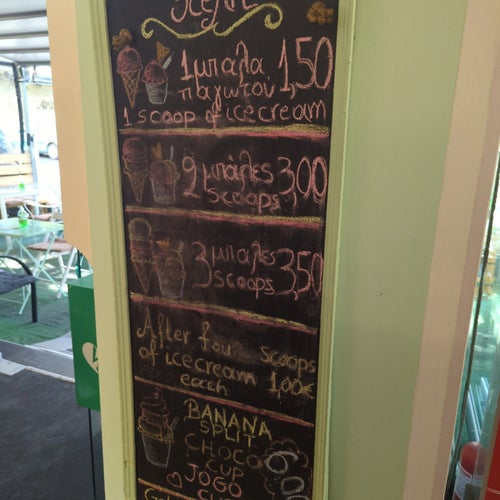 1 μπάλα 1,50
παγωτού
1 scoop of ice cream
2 μπάλες 3,00
scoops
3 μπάλες 3,50
scoops
After four scoops
of ice cream
each 1,00€
BANANA
SPLIT
CHOCO
CUP
JOGO